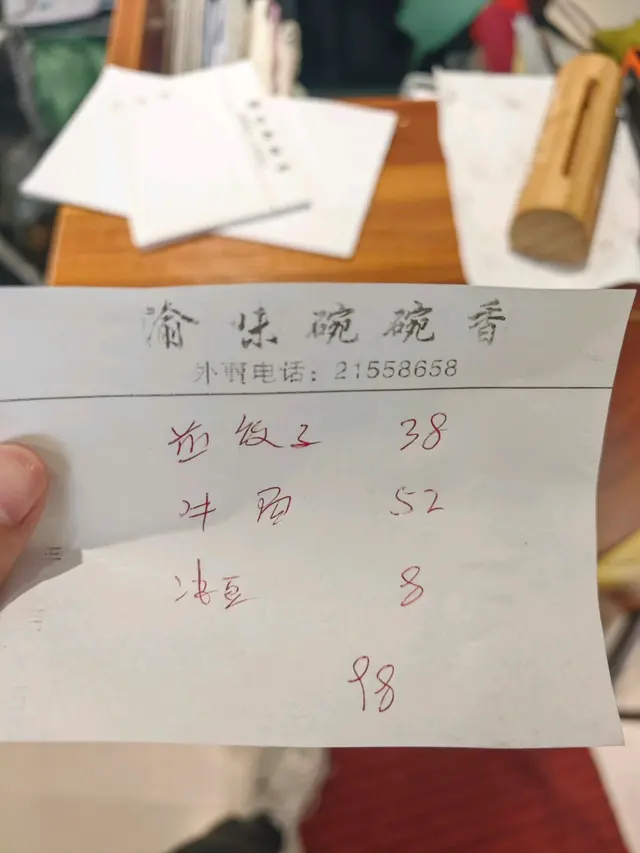 渝味碗碗香
外賣电话：21558658
煎饺子 38
牛面 52
冻豆 8
98